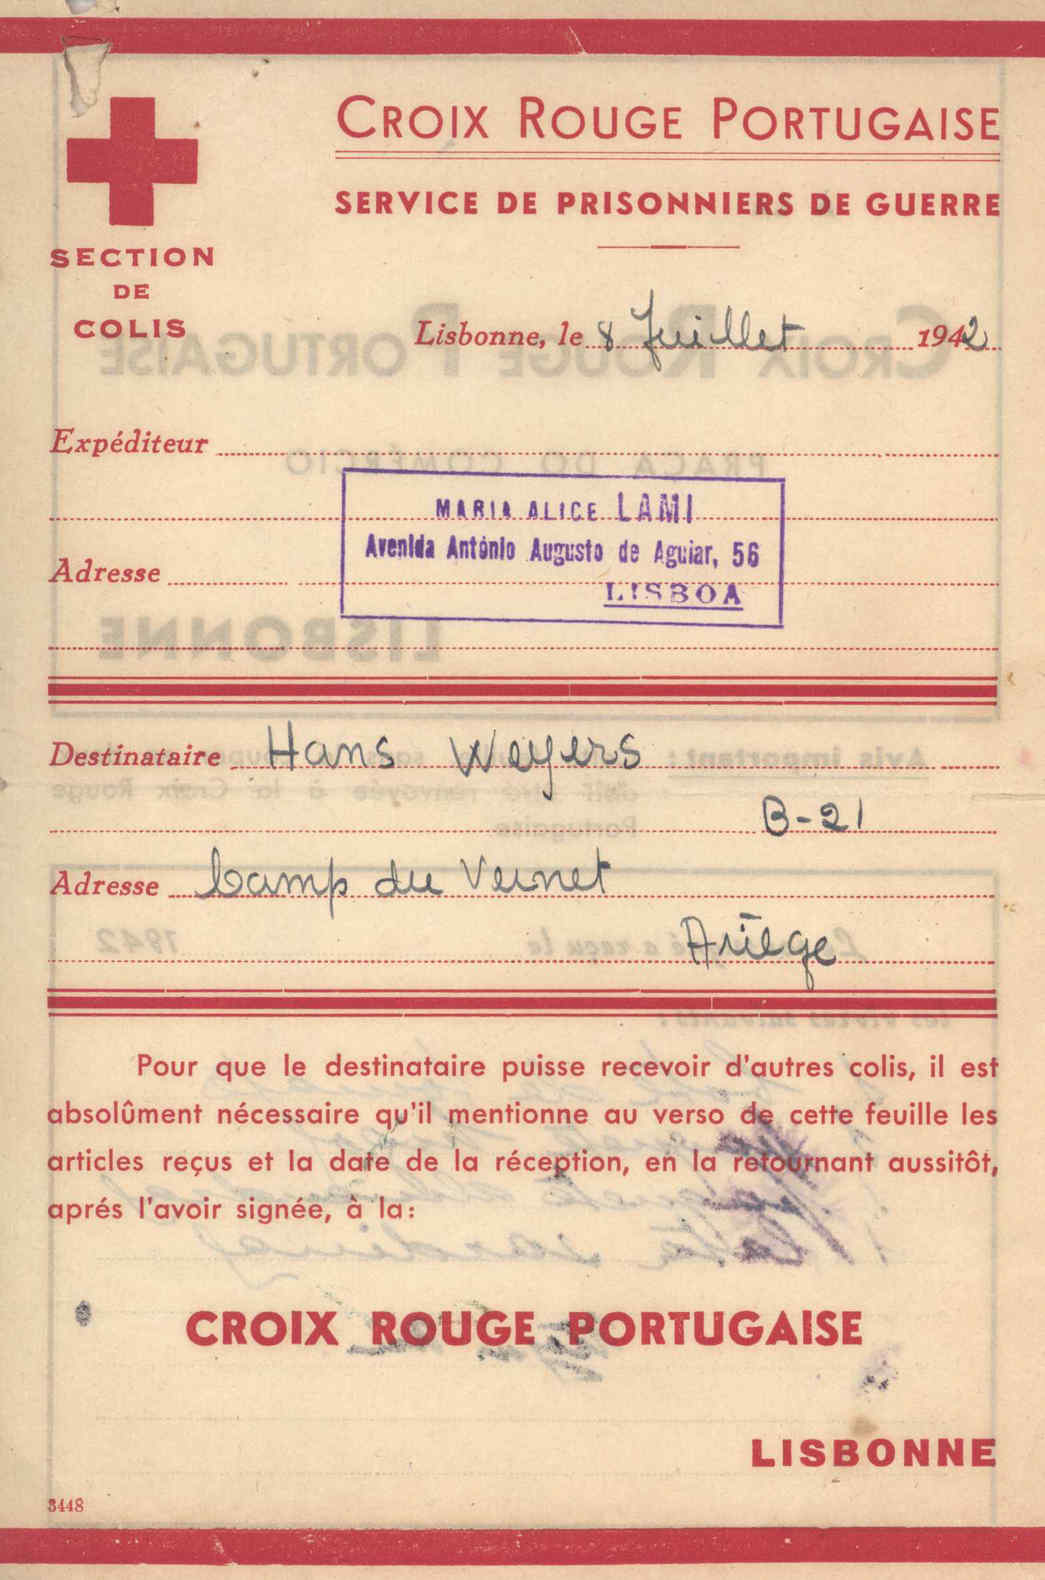 CROIX ROUGE PORTUGAISE
SERVICE DE PRISONNIERS DE GUERRE
SECTION
DE
COLIS
Lisbonne, le 8 Juillet 1942
Expéditeur
MARIA ALICE LAMI
Avenida António Augusto de Aguiar, 56
LISBOA
Adresse
Destinataire Hans Weyers
B-21
Adresse Camp du Vernet
Ariège
Pour que le destinataire puisse recevoir d'autres colis, il est
absolûment nécessaire qu'il mentionne au verso de cette feuille les
articles reçus et la date de la réception, en la retournant aussitôt,
aprés l'avoir signée, à la:
CROIX ROUGE PORTUGAISE
LISBONNE
3448